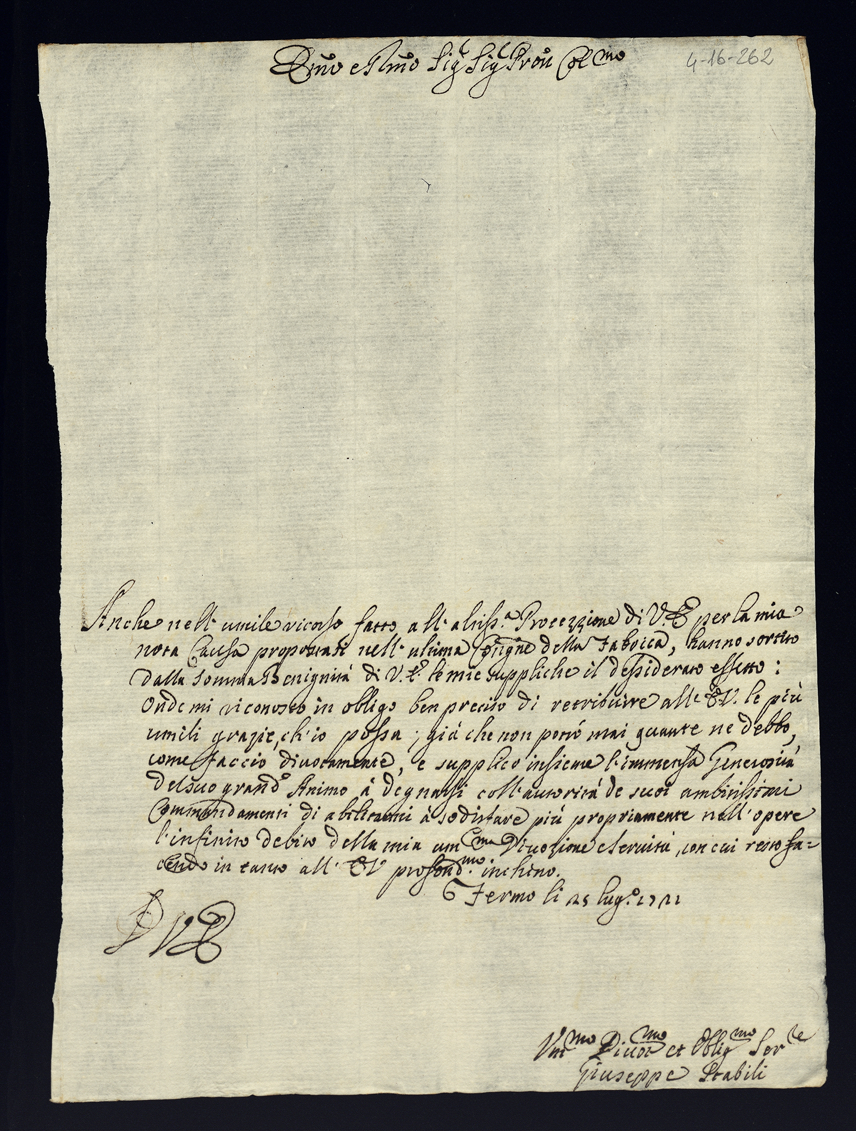 Emo e Rmo Sig.r Sig.r Pron Col.mo
4-16-262
Anche nell'umile ricorso fatto all'altiss.a Protezzione di V.E. per la mia
nota Causa proposta nell'ultima Congne della Fabrica, hanno sortito
dalla somma Benignità di V.E. le mie suppliche il dessiderato effetto:
Onde mi riconosco in obligo ben preciso di retribuire all'E.V. le più
umili grazie, ch'io possa; già che non potrò mai quante ne debbo,
come faccio divotamente, e supplico insieme l'immensa Generosità
del suo grand'Animo à degnarsi coll'autorità de suoi ambitissimi
Commandamenti di abilitarmi à sodisfare più propriamente nell'opere
l'infinito debito della mia um.ma Divozione e servitù, con cui resto fa=
cendo in tanto all'E.V. profond.mo inchino.
Fermo li 25 lug.o 1721
D V E
Um.mo Divot.mo et Oblig.mo Ser.re
Giuseppe Stabili